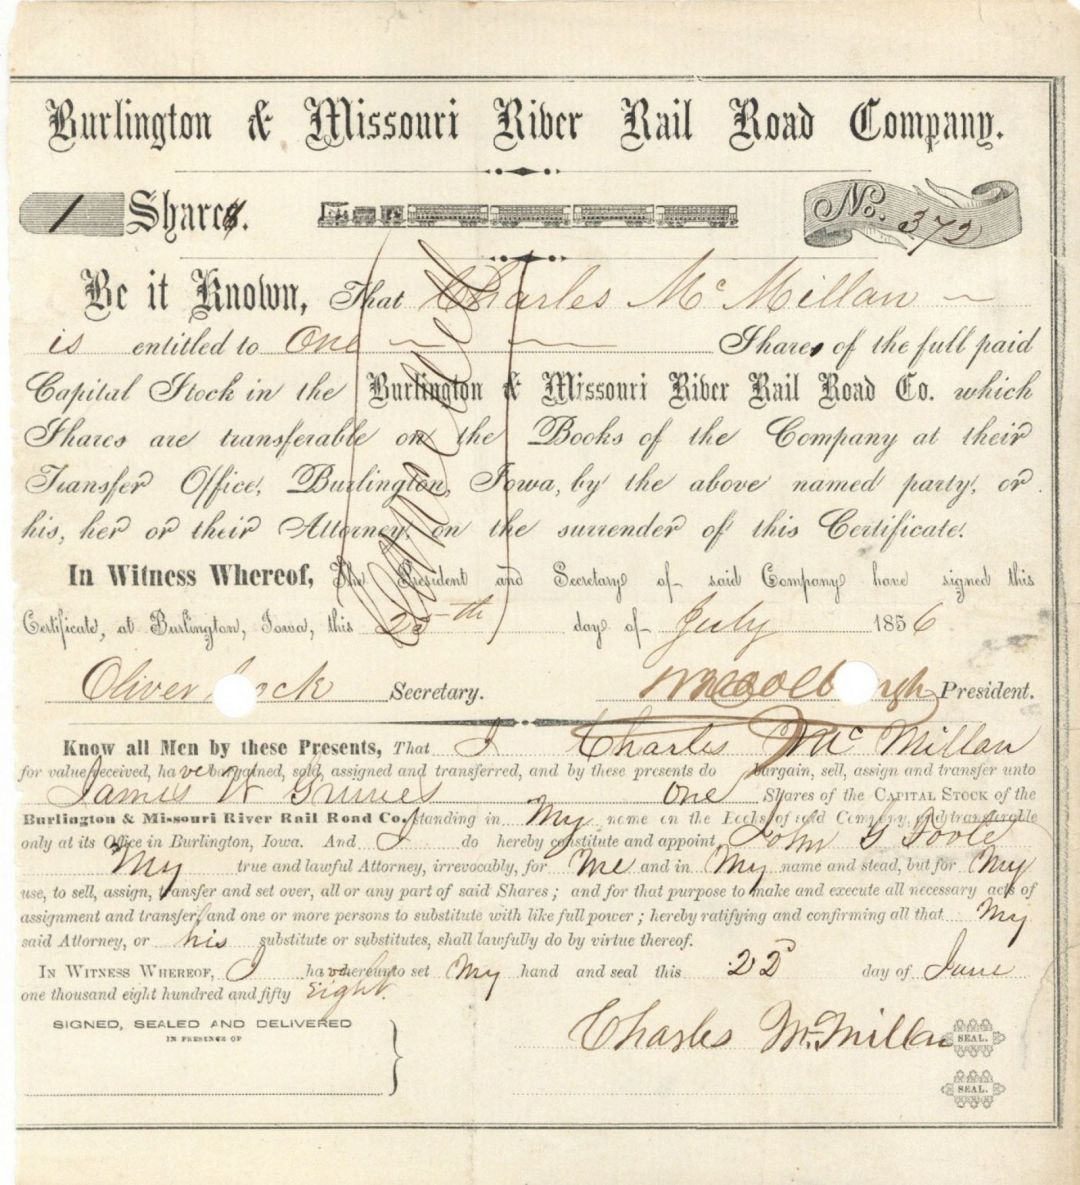 Burlington & Missouri River Rail Road Company.
1 Shares.
No. 372
Be it Known, That Charles Mc Millan
is entitled to One Shares of the full paid
Capital Stock in the Burlington & Missouri River Rail Road Co. which
Shares are transferable on the Books of the Company at their
Transfer Office, Burlington, Iowa, by the above named party, or
his, her or their Attorney, on the surrender of this Certificate.
Cancelled
In Witness Whereof, The President and Secretary of said Company have signed this
Certificate, at Burlington, Iowa, this 25th day of July 1856
Oliver Secretary. President.
Know all Men by these Presents, That I Charles Mc Millan
for value received, have bargained, sold, assigned and transferred, and by these presents do bargain, sell, assign and transfer unto
James W Grimes One Shares of the CAPITAL STOCK of the
Burlington & Missouri River Rail Road Co. standing in My name on the Books of said Company, and transferable
only at its Office in Burlington, Iowa. And I do hereby constitute and appoint John G Foote
My true and lawful Attorney, irrevocably, for Me and in My name and stead, but for My
use, to sell, assign, transfer and set over, all or any part of said Shares; and for that purpose to make and execute all necessary acts of
assignment and transfer, and one or more persons to substitute with like full power; hereby ratifying and confirming all that My
said Attorney, or his substitute or substitutes, shall lawfully do by virtue thereof.
IN WITNESS WHEREOF, I have hereunto set My hand and seal this 22d day of June
one thousand eight hundred and fifty Eight.
SIGNED, SEALED AND DELIVERED
IN PRESENCE OF
Charles McMillan SEAL.
SEAL.